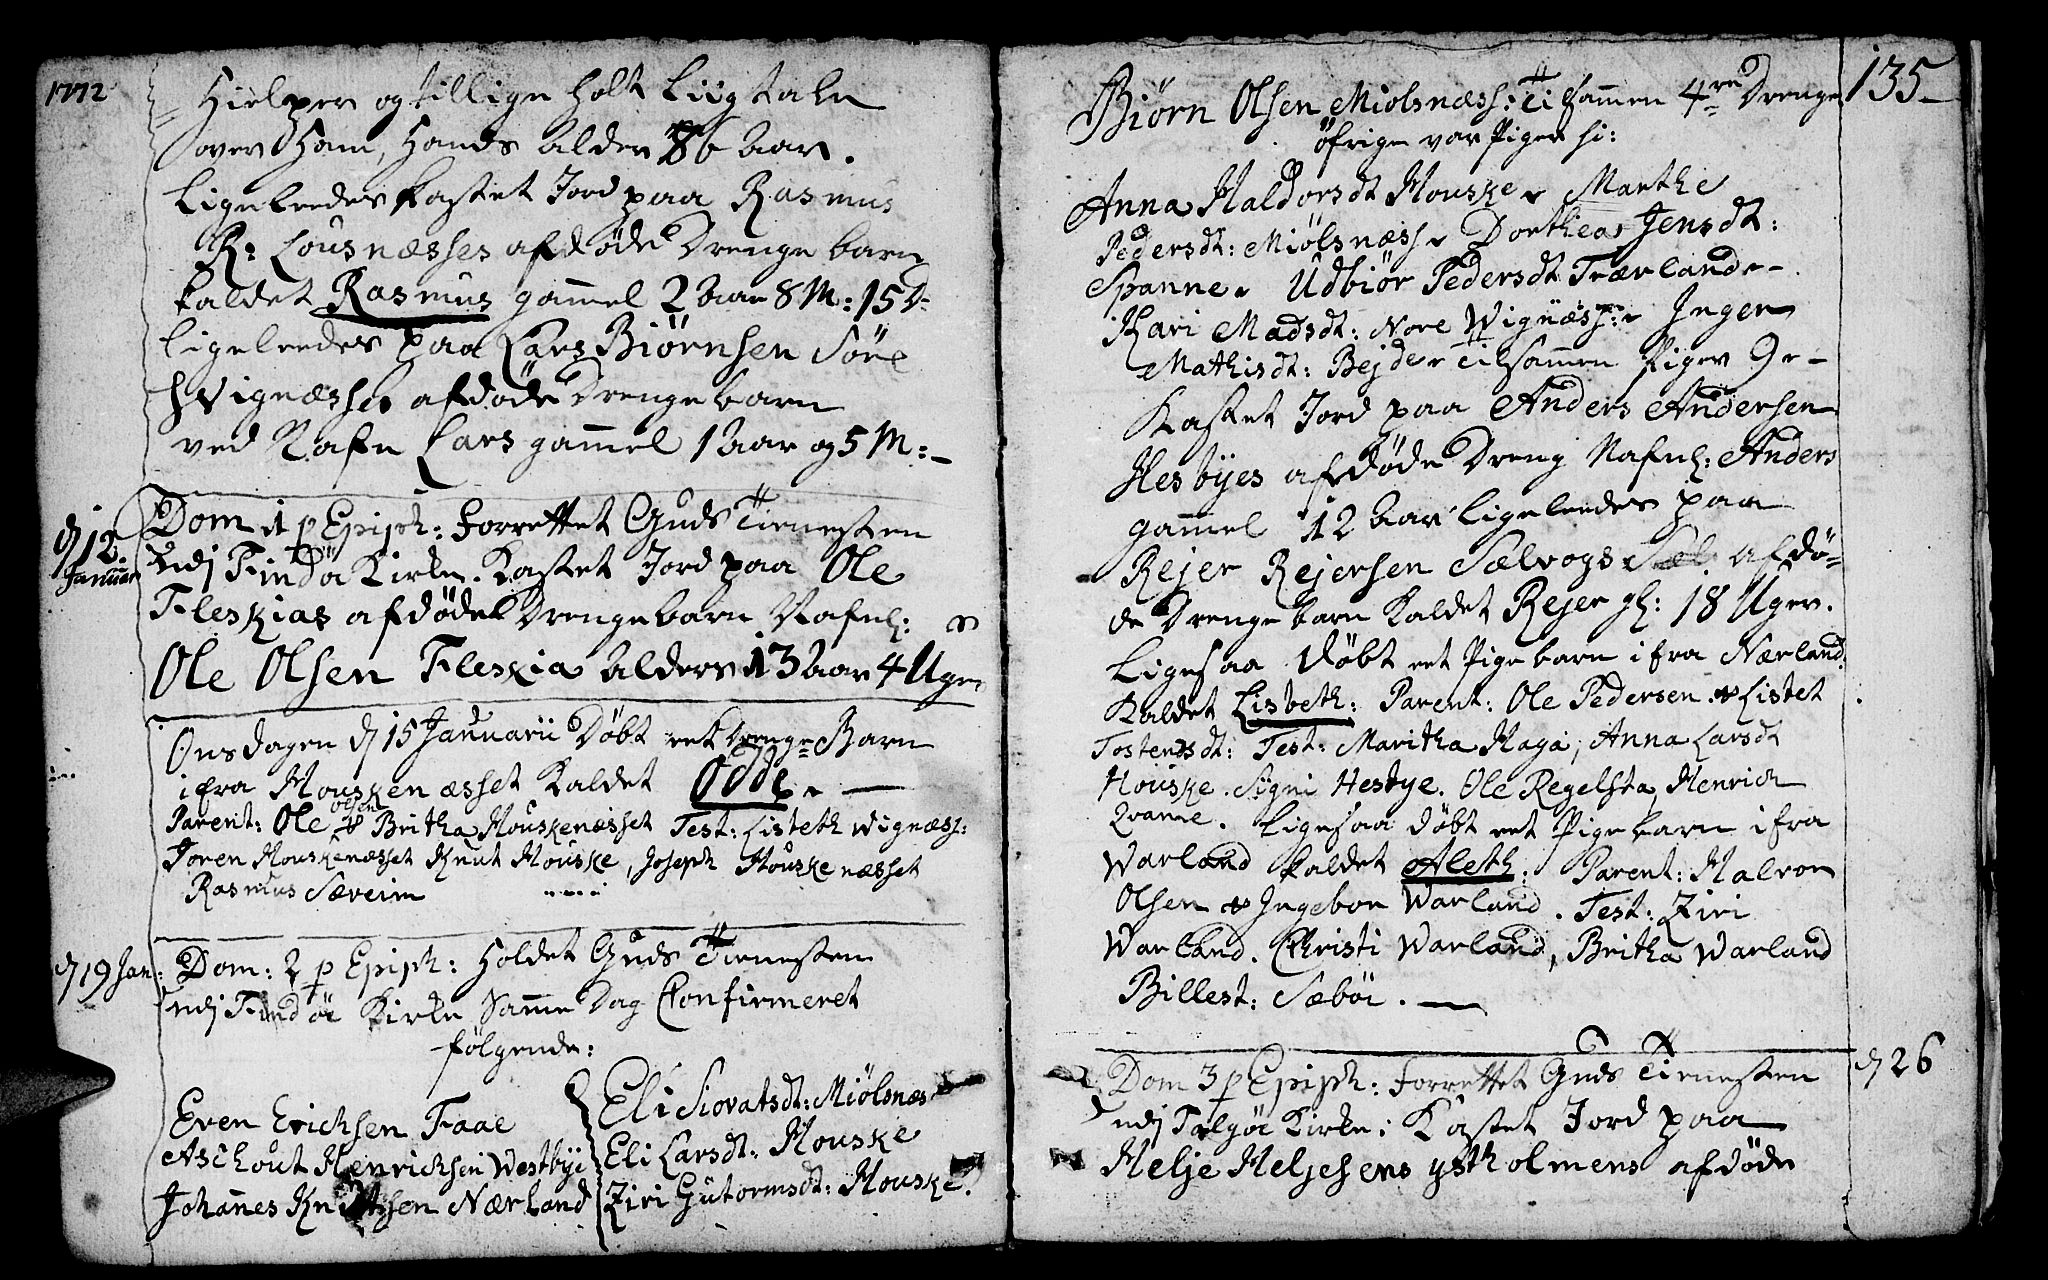 1772
Hielper og tillige holt Liigtale
over Ham, Hands alder 86 aar.
Ligeleedes kastet Jord paa Rasmus
R: Lousnæsses afdøde Drenge barn
kaldet Rasmus gam̄el 2 aar 8 M: 15 D
Ligeleedes paa Lars Biørnsen Söre
Wignæsses afdøde Drenge barn
ved Nafn Lars gam̄el 1 aar og 5 M: -
d 12 Januar
Dom 1 p Epiph: Forrettet Guds Tienesten
udj Findö Kirke. Kastet Jord paa Ole
Fleskias afdöde Drengebarn Nafnl:
Ole Olsen Fleskia alders 13 aar 4 Uger
Onsdagen d 15 Januarii Döbt eet Drenge-Barn
ifra Houskenæsset Kaldet Odde. -
Parent: Ole olsen & Britha Houskenæsset Test: Lisbeth Wignæss:
Joren Houskenæsset Knut Houske, Joseph Houskenæsset
Rasmus Sæveim
d 19 Jan:
Dom: 2 p Epiph: Holdet Guds Tienesten
udj Findöe Kirke Sam̄e Dag Confirmeret
følgende:
Even Erichsen Faae
Aschout Henrichsen Westbye
Johan̄es Knutsen Nærland
Eli Siovatsdt: Miölsnæs
Eli Larsdt: Houske
Ziri Gutormsdt: Houske.
135
Biørn Olsen Miolsnæss: Tilsam̄en 4re Drenge
öfrige var Piger si:
Anna Haldorsdt Houske Marthe
Pedersdt: Miölsnæss Dorthea Jensdt:
Spanne Udbiör Pedersdt Tærland -
Kari Madsdt: Nore Wignæss: Inger
Mathisdt: Bejder Tilsam̄en Piger 9 -
Kastet Jord paa Anders Andersen
Hesbyes afdöde Dreng Nafnl: Anders
gam̄el 12 aar ligeleedes paa
Rejer Rejersen Sælvogs afdö-
de Drenge barn Kaldet Rejer gl: 18 Uger.
Ligesaa döbt eet Pige barn ifra Nærland
Kaldet Lisbeth: Parent: Ole Pedersen & Lisbet
Tostensdt: Test: Maritha Haga, Anna Larsdt
Houske. Signi Hesbye. Ole Regelsta, Henrich
Qvame. Ligesaa döbt eet Pige barn ifra
Warland kaldet Aleth: Parent: Halvor
Olsen & Ingebor Warland. Test: Ziri
Warland. Christi Warland, Britha Warland
Billest: Sæböe. -
d 26
Dom 3 p Epiph: Forrettet Guds Tienesten
udj Talgöe Kirke: Kastet Jord paa
Helje Heljesens ystholmens afdöde